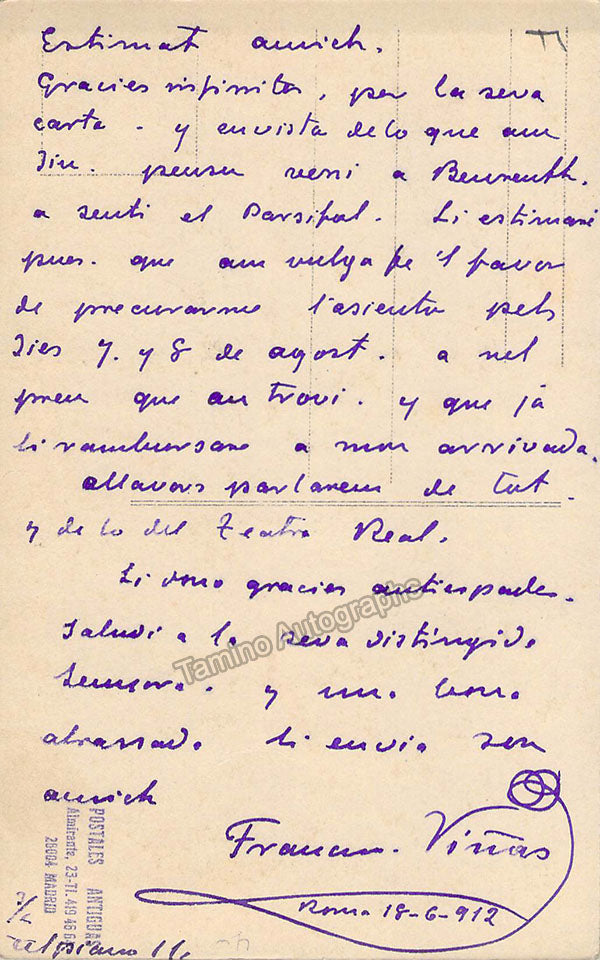 Estimat amich.
Gracies infinitas, per la seva
carta. y en vista de lo que am
diu. pensu veni a Beureuth.
a senti el Parsifal. Li estimaré
pues. que am vulga fe 'l favor
de precurarme l'asientu pels
dies 7. y 8 de agost. a nel
preu que au trovi. y que já
li rambursare a mon arrivada.
Allavors parlarem de tut.
y de lo del Teatro Real.
Li dono gracies anticipades.
Saludi a la seva distingida
Sennora. y una bona
abrassada li envia son
amich
Francisco Viñas
Roma 18-6-912
Tamino Autographs
POSTALES ANTIGUAS
Almirante, 23-Tl. 419 46 6
28004 MADRID